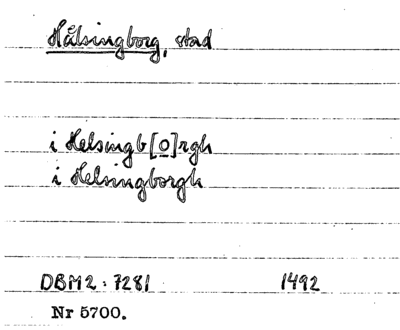 Hälsingborg, stad
i Helsingb[o]rgh
i Helsingborgh
DBM2:7281 1492
Nr 5700.